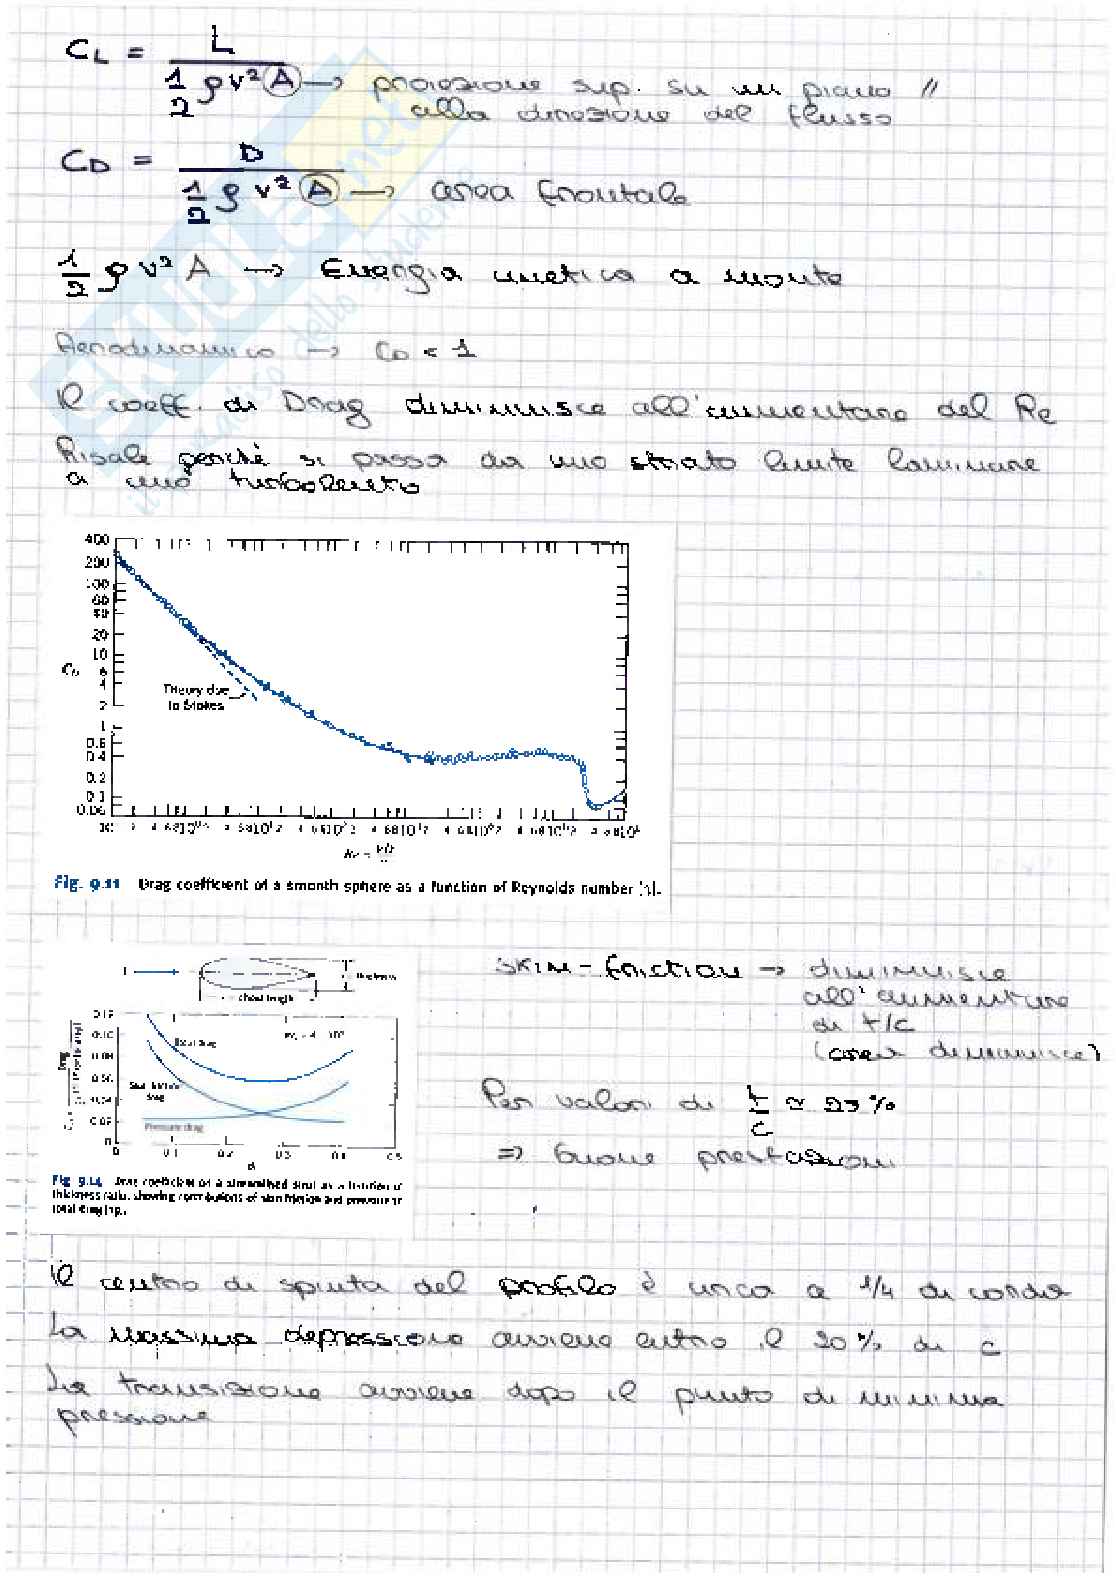 CL = L / 1/2 ρ v² A → proiezione sup. su un piano //
alla direzione del flusso
CD = D / 1/2 ρ v² A → area frontale
1/2 ρ v² A → Energia cinetica a monte
Aerodinamico → CD < 1
Il coeff. di Drag diminuisce all'aumentare del Re
Risale perché si passa da uno strato limite laminare
a uno turbolento
400
200
100
60
40
20
10
6
4
2
1
0.6
0.4
0.2
0.1
0.06
CD
Theory due
to Stokes
Fig. 9.11 Drag coefficient of a smooth sphere as a function of Reynolds number
thickness
Chord length
0.12
0.10
0.08
0.06
0.04
0.02
0
Total drag
Skin friction
drag
Pressure drag
0 0.1 0.2 0.3 0.4 0.5
Fig. 9.14 Drag coefficient on a streamlined strut as a function of
thickness ratio, showing contributions of skin friction and pressure to
total drag
SKIN - friction → diminuisce
all'aumentare
di t/c
(area diminuisce)
Per valori di t/c ≃ 25%
⇒ buone prestazioni
Il centro di spinta del profilo è circa a 1/4 di corda
La massima depressione avviene entro il 20% di c
La transizione avviene dopo il punto di minima
pressione